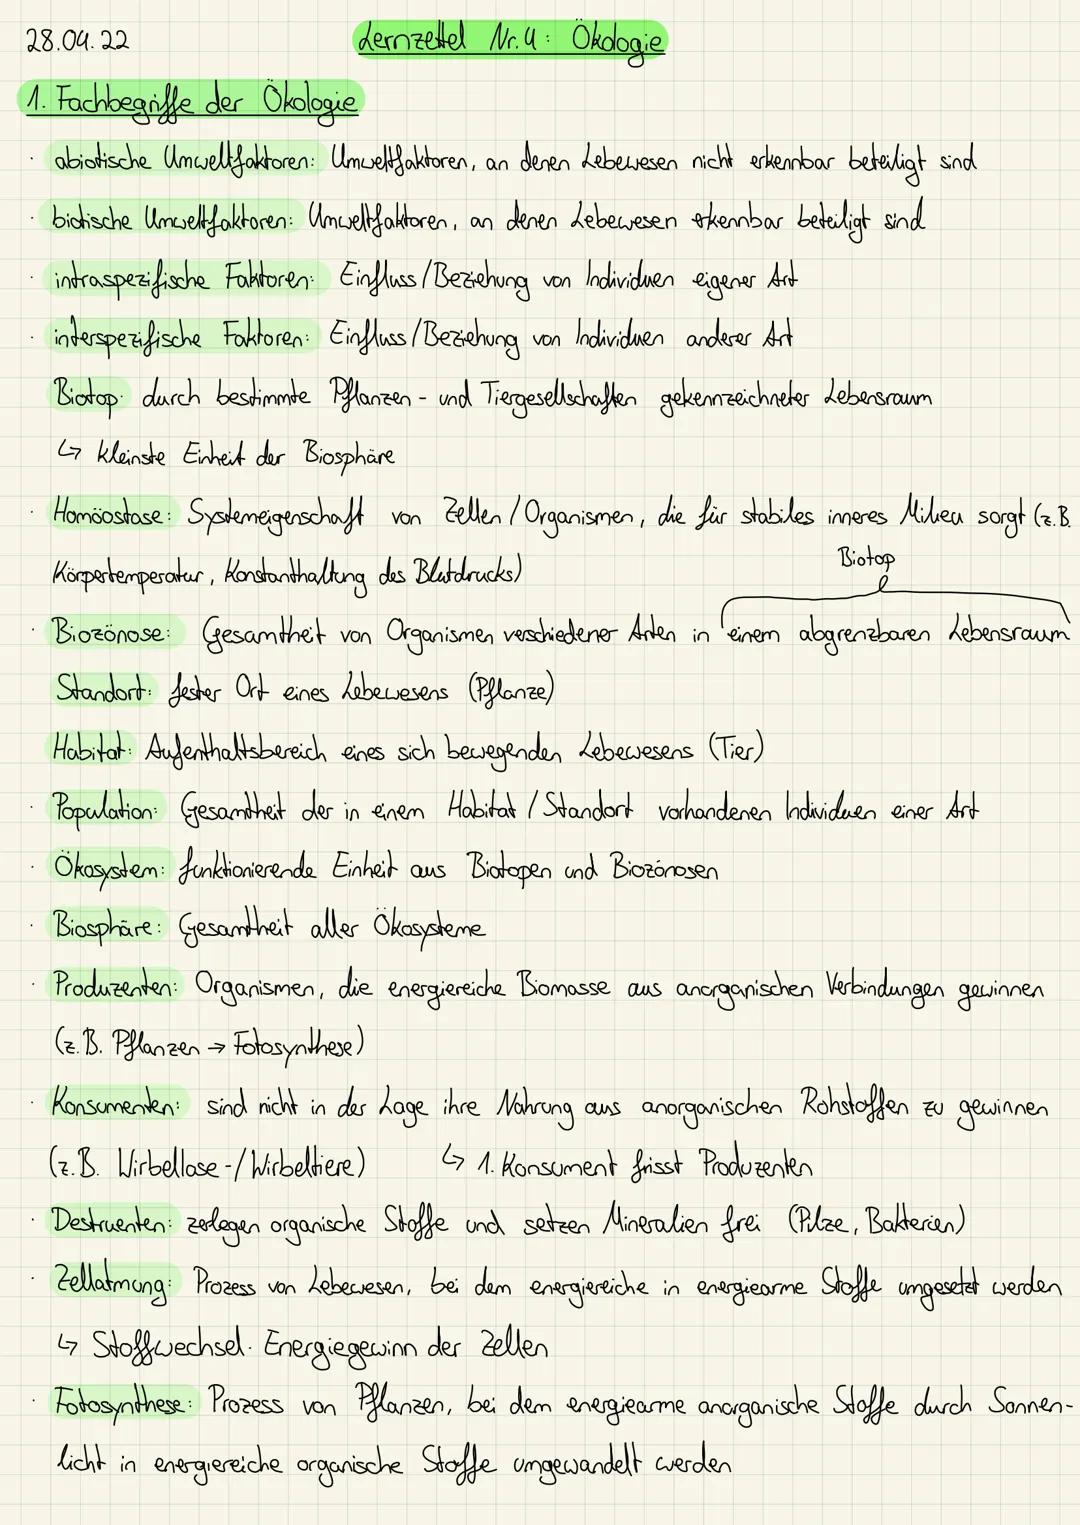 28.04.22
Lernzettel Nr.4: Ökologie
1. Fachbegriffe der Ökologie
· abiotische Umweltfaktoren: Umweltfaktoren, an denen Lebewesen nicht erkennbar beteiligt sind
· biotische Umweltfaktoren: Umweltfaktoren, an denen Lebewesen erkennbar beteiligt sind
· intraspezifische Faktoren: Einfluss/Beziehung von Individuen eigener Art
· interspezifische Faktoren: Einfluss/Beziehung von Individuen anderer Art
Biotop: durch bestimmte Pflanzen- und Tiergesellschaften gekennzeichneter Lebensraum
↳ kleinste Einheit der Biosphäre
· Homöostase: Systemeigenschaft von Zellen/Organismen, die für stabiles inneres Milieu sorgt (z.B.
Körpertemperatur, Konstanthaltung des Blutdrucks)
Biotop
· Biozönose: Gesamtheit von Organismen verschiedener Arten in einem abgrenzbaren Lebensraum
Standort: fester Ort eines Lebewesens (Pflanze)
Habitat: Aufenthaltsbereich eines sich bewegenden Lebewesens (Tier)
· Population: Gesamtheit der in einem Habitat/Standort vorhandenen Individuen einer Art
· Ökosystem: funktionierende Einheit aus Biotopen und Biozönosen
· Biosphäre: Gesamtheit aller Ökosysteme
· Produzenten: Organismen, die energiereiche Biomasse aus anorganischen Verbindungen gewinnen
(z.B. Pflanzen → Fotosynthese)
· Konsumenten: sind nicht in der Lage ihre Nahrung aus anorganischen Rohstoffen zu gewinnen
(z.B. Wirbellose-/Wirbeltiere) ↳ 1. Konsument frisst Produzenten
· Destruenten: zerlegen organische Stoffe und setzen Mineralien frei (Pilze, Bakterien)
· Zellatmung: Prozess von Lebewesen, bei dem energiereiche in energiearme Stoffe umgesetzt werden
↳ Stoffwechsel: Energiegewinn der Zellen
· Fotosynthese: Prozess von Pflanzen, bei dem energiearme anorganische Stoffe durch Sonnen-
licht in energiereiche organische Stoffe umgewandelt werden